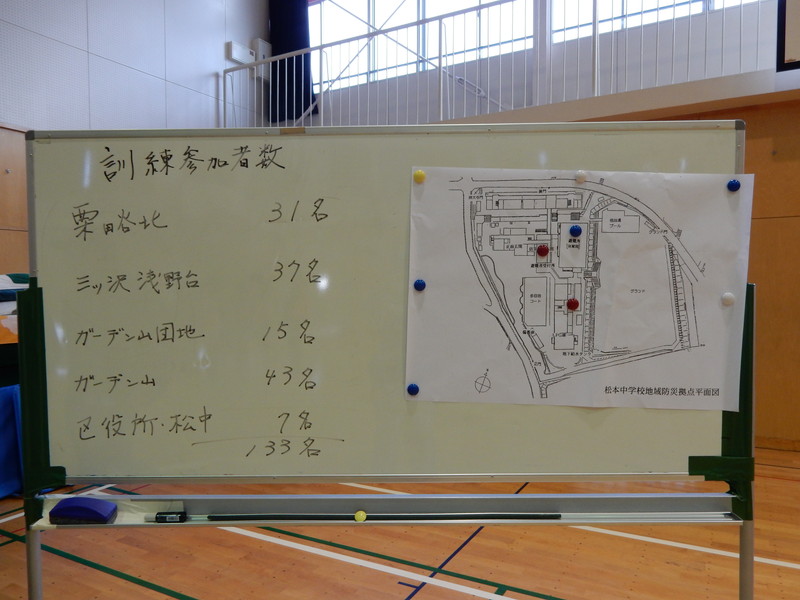 訓練参加者数
栗田谷北 31名
三ッ沢浅野台 37名
ガーデン山団地 15名
ガーデン山 43名
区役所・松中 7名
133名
プール
グランド
コート
松本中学校地域防災拠点平面図